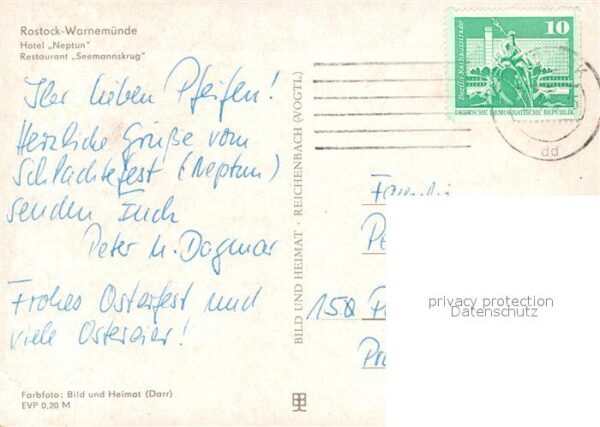 Rostock-Warnemünde
Hotel „Neptun"
Restaurant „Seemannskrug"
Ihr lieben Pfeifen!
Herzliche Grüße vom
Schlachtefest (Neptun)
senden Euch
Peter u. Dagmar
Frohes Osterfest und
viele Ostereier!
Farbfoto: Bild und Heimat (Darr)
EVP 0,20 M
BILD UND HEIMAT · REICHENBACH (VOGTL)
10
DEUTSCHE DEMOKRATISCHE REPUBLIK
dd
Familie
150
privacy protection
Datenschutz